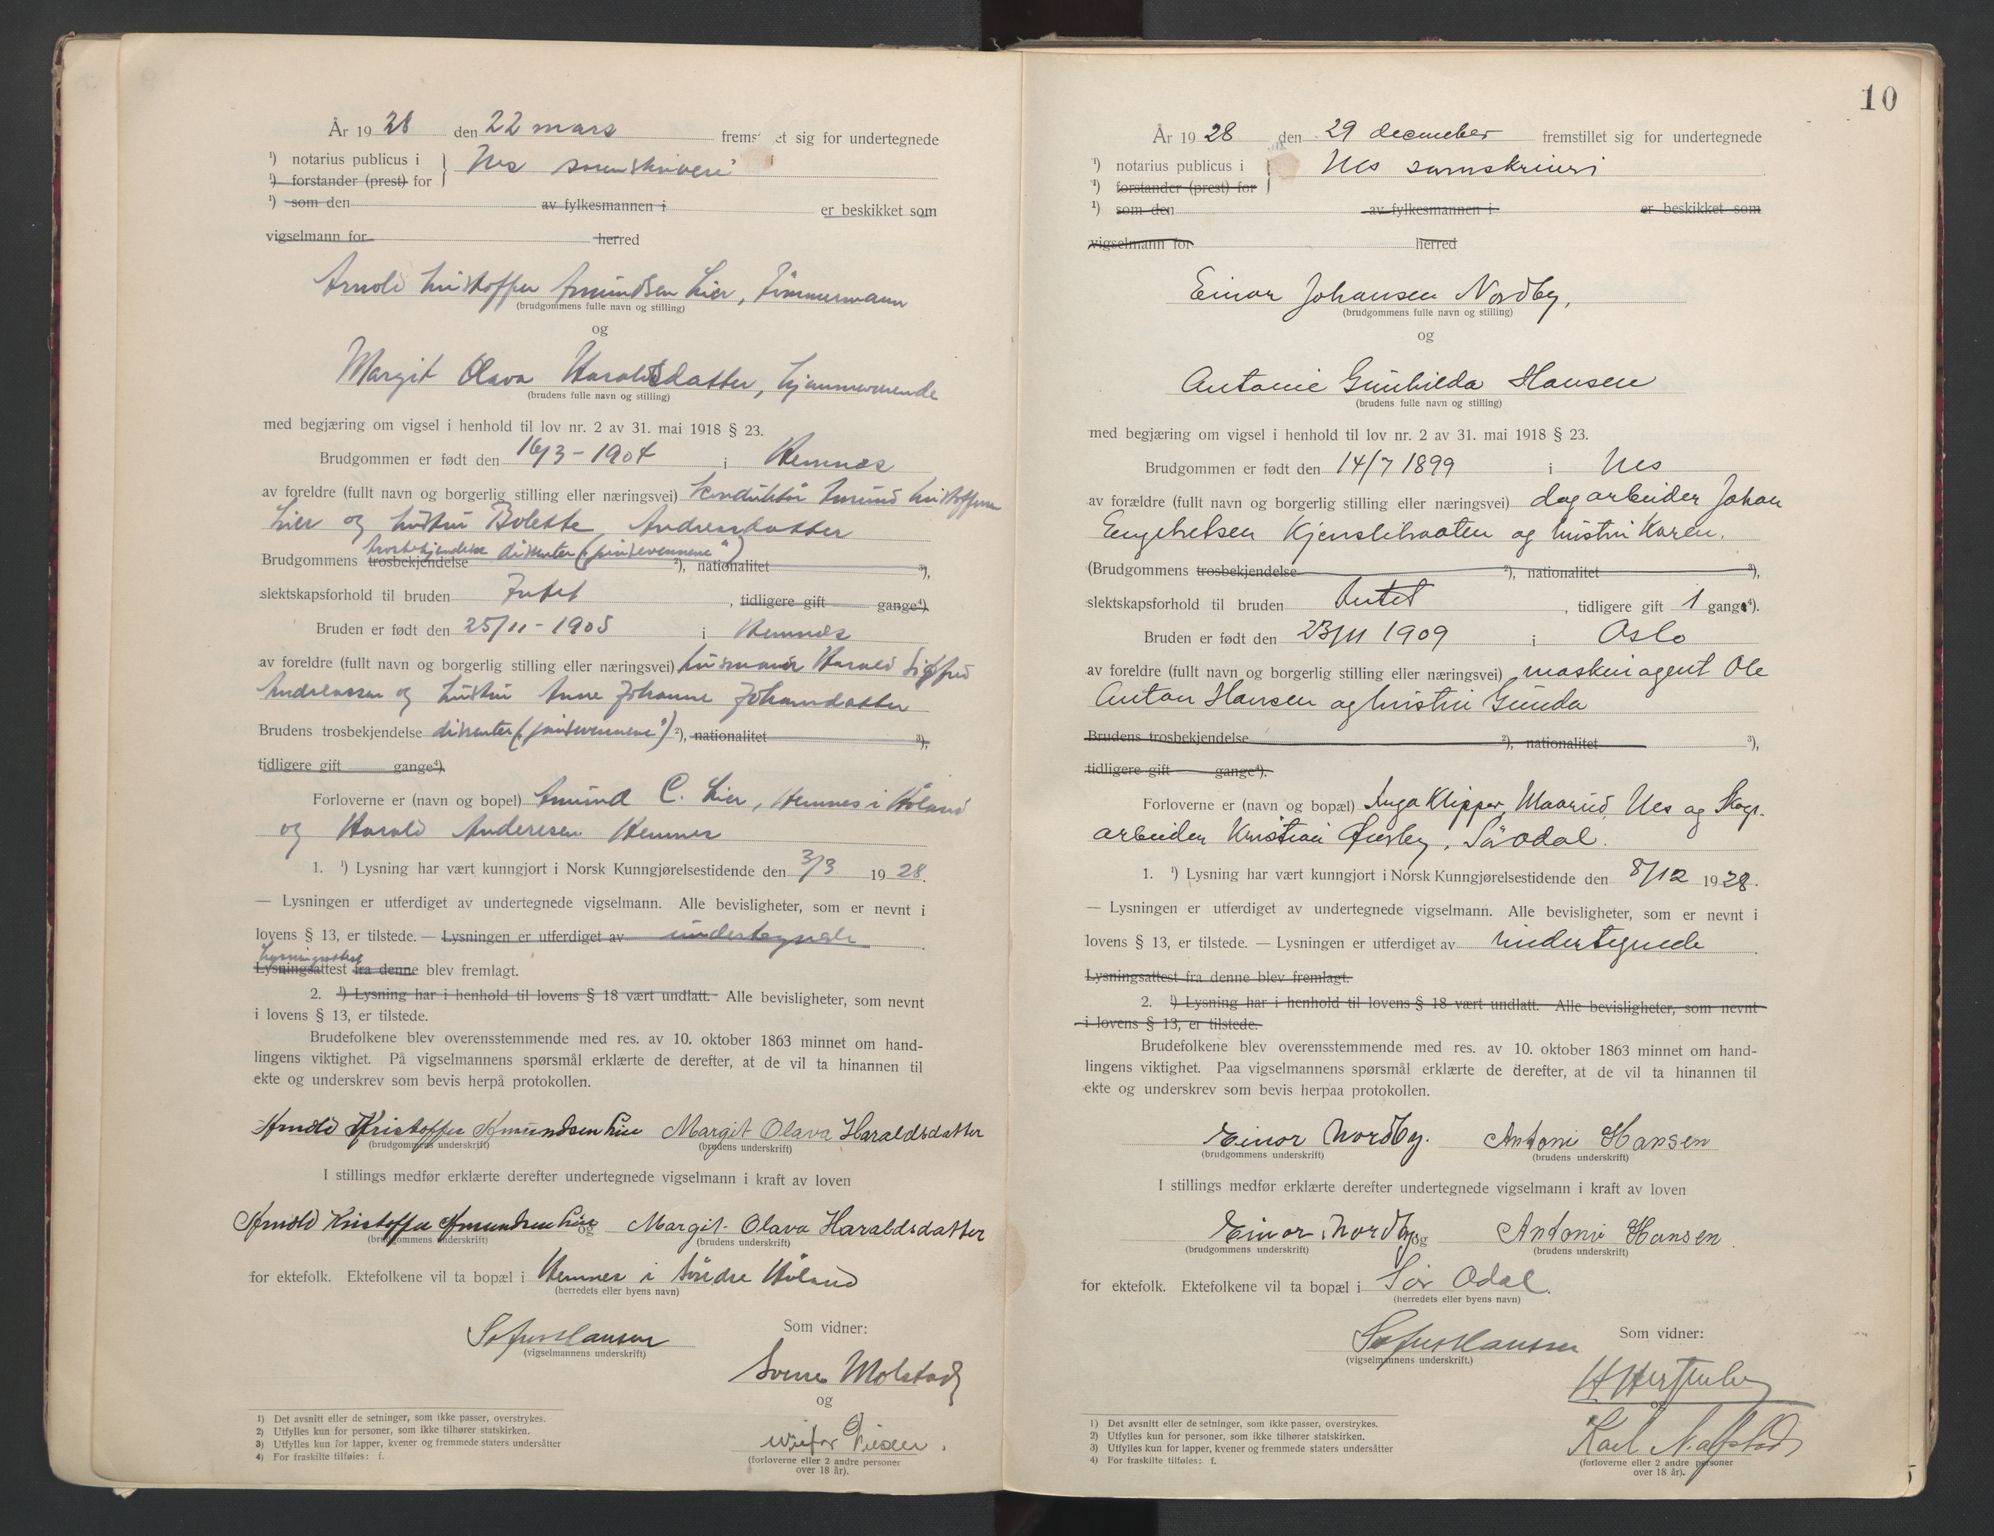 År 1928 den 22 mars fremst et sig for undertegnede
¹) notarius publicus i } Nes sorenskriveri
¹) forstander (prest) for
¹) som den av fylkesmannen i er beskikket som
vigselmann for herred
Arnold Kristoffer Amundsen Lier, Tømmermann
(brudgommens fulle navn og stilling)
og
Margit Olava Haraldsdatter, hjemmeværende
(brudens fulle navn og stilling)
med begjæring om vigsel i henhold til lov nr. 2 av 31. mai 1918 § 23.
Brudgommen er født den 16/3 - 1904 i Hemnes
av foreldre (fullt navn og borgerlig stilling eller næringsvei) konduktør Amund Kristoffersen
Lier og hustru Bolette Andreasdatter
trosbekjendelse dissenter ("pinsevennene")
Brudgommens trosbekjendelse ²), nationalitet ³),
slektskapsforhold til bruden Intet, tidligere gift gange⁴).
Bruden er født den 25/11 - 1905 i Hemnes
av foreldre (fullt navn og borgerlig stilling eller næringsvei) husmann Harald Sigfred
Andreassen og hustru Anne Johanne Johansdatter
Brudens trosbekjendelse dissenter ("pinsevennene") ²), nationalitet ³),
tidligere gift gange⁴).
Forloverne er (navn og bopel) Amund C. Lier, Hemnes i Høland
og Harald Andresen Hemnes
1. ¹) Lysning har vært kunngjort i Norsk Kunngjørelsestidende den 3/3 1928.
— Lysningen er utferdiget av undertegnede vigselmann. Alle bevisligheter, som er nevnt i
lovens § 13, er tilstede. — Lysningen er utferdiget av undertegnede
Lysningsattest
Lysningsattest fra denne blev fremlagt.
2. ¹) Lysning har i henhold til lovens § 18 vært undlatt. Alle bevisligheter, som nevnt
i lovens § 13, er tilstede.
Brudefolkene blev overensstemmende med res. av 10. oktober 1863 minnet om hand-
lingens viktighet. På vigselmannens spørsmål erklærte de derefter, at de vil ta hinannen til
ekte og underskrev som bevis herpå protokollen.
Arnold Kristoffer Amundsen Lier Margit Olava Haraldsdatter
(brudgommens underskrift) (brudens underskrift)
I stillings medfør erklærte derefter undertegnede vigselmann i kraft av loven
Arnold Kristoffer Amundsen Lier og Margit Olava Haraldsdatter
(brudgommens underskrift) (brudens underskrift)
for ektefolk. Ektefolkene vil ta bopæl i Hemnes i Søndre Høland
(herredets eller byens navn)
Sofus Hansen Som vidner:
(vigselmannens underskrift)
Sverre Molstad
og
(forloverne eller 2 andre personer
over 18 år).
1) Det avsnitt eller de setninger, som ikke passer, overstrykes.
2) Utfylles kun for personer, som ikke tilhører statskirken.
3) Utfylles kun for lapper, kvener og fremmede staters undersåtter
4) For fraskilte tilføies: f.
10
År 1928 den 29 december fremstillet sig for undertegnede
¹) notarius publicus i } Nes sorenskriveri
¹) forstander (prest) for
¹) som den av fylkesmannen i er beskikket som
vigselmann for herred
Einar Johansen Nordby,
(brudgommens fulle navn og stilling)
og
Antonie Gunhilda Hansen
(brudens fulle navn og stilling)
med begjæring om vigsel i henhold til lov nr. 2 av 31. mai 1918 § 23.
Brudgommen er født den 14/7 1899 i Nes
av forældre (fullt navn og borgerlig stilling eller næringsvei) dagarbeider Johan
Engebretsen Kjenslibraaten og hustru Karen.
(Brudgommens trosbekjendelse ²), nationalitet ³),
slektskapsforhold til bruden Intet, tidligere gift 1 gang⁴).
Bruden er født den 23/11 1909 i Oslo
av foreldre (fullt navn og borgerlig stilling eller næringsvei) maskinagent Ole
Anton Hansen og hustru Gunda
Brudens trosbekjendelse ²), nationalitet ³),
tidligere gift gange⁴).
Forloverne er (navn og bopæl) Inga Klipper, Maarud, Nes og Skogs-
arbeider Kristian Øiesby, Sørodal.
1. ¹) Lysning har vært kunngjort i Norsk Kunngjørelsestidende den 8/12 1928.
— Lysningen er utferdiget av undertegnede vigselmann. Alle bevisligheter, som er nevnt i
lovens § 13, er tilstede. — Lysningen er utferdiget av undertegnede
Lysningsattest fra denne blev fremlagt.
2. ¹) Lysning har i henhold til lovens § 18 vært undlatt. Alle bevisligheter, som nevnt
i lovens § 13, er tilstede.
Brudefolkene blev overensstemmende med res. av 10. oktober 1863 minnet om hand-
lingens viktighet. Paa vigselmannens spørsmål erklærte de derefter, at de vil ta hinannen til
ekte og underskrev som bevis herpaa protokollen.
Einar Nordby. Antoni Hansen
(brudgommens underskrift) (brudens underskrift)
I stillings medfør erklærte derefter undertegnede vigselmann i kraft av loven
Einar Nordby og Antoni Hansen
(brudgommens underskrift) (brudens underskrift)
for ektefolk. Ektefolkene vil ta bopæl i Sør Odal.
(herredets eller byens navn)
Sofus Hansen Som vidner:
(vigselmannens underskrift.)
H Hertzenberg
og
Karl Nafstad
(forloverne eller 2 andre personer
over 18 år).
1) Det avsnitt eller de setninger, som ikke passer, overstrykes.
2) Utfylles kun for personer, som ikke tilhører statskirken.
3) Utfylles kun for lapper, kvener og fremmede staters undersåtter
4) For fraskilte tilføies: f.